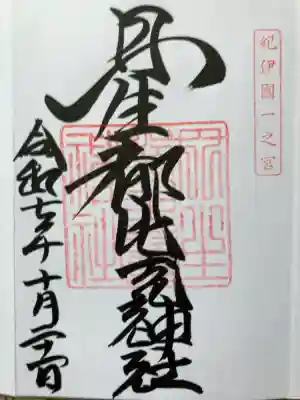 紀伊國一之宮
丹生都比売神社
令和七年十月二十日